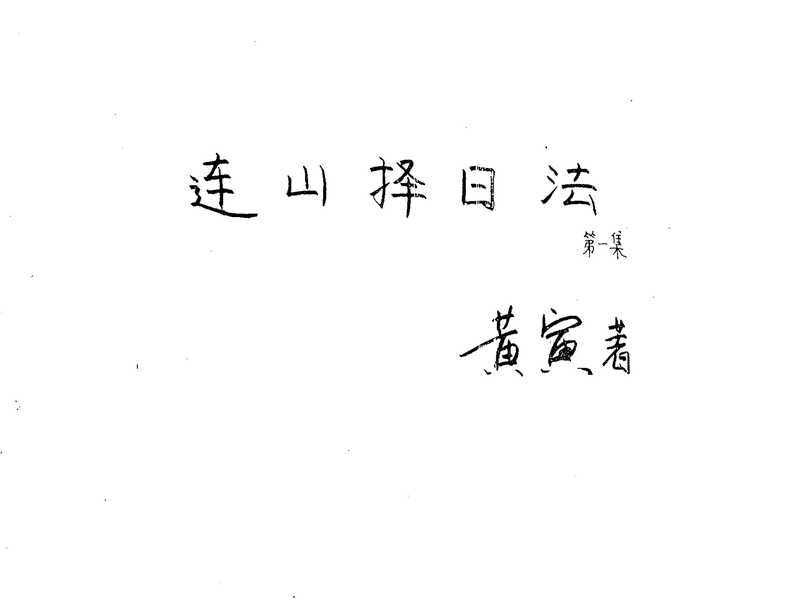 连山择日法
第一集
黄寅著